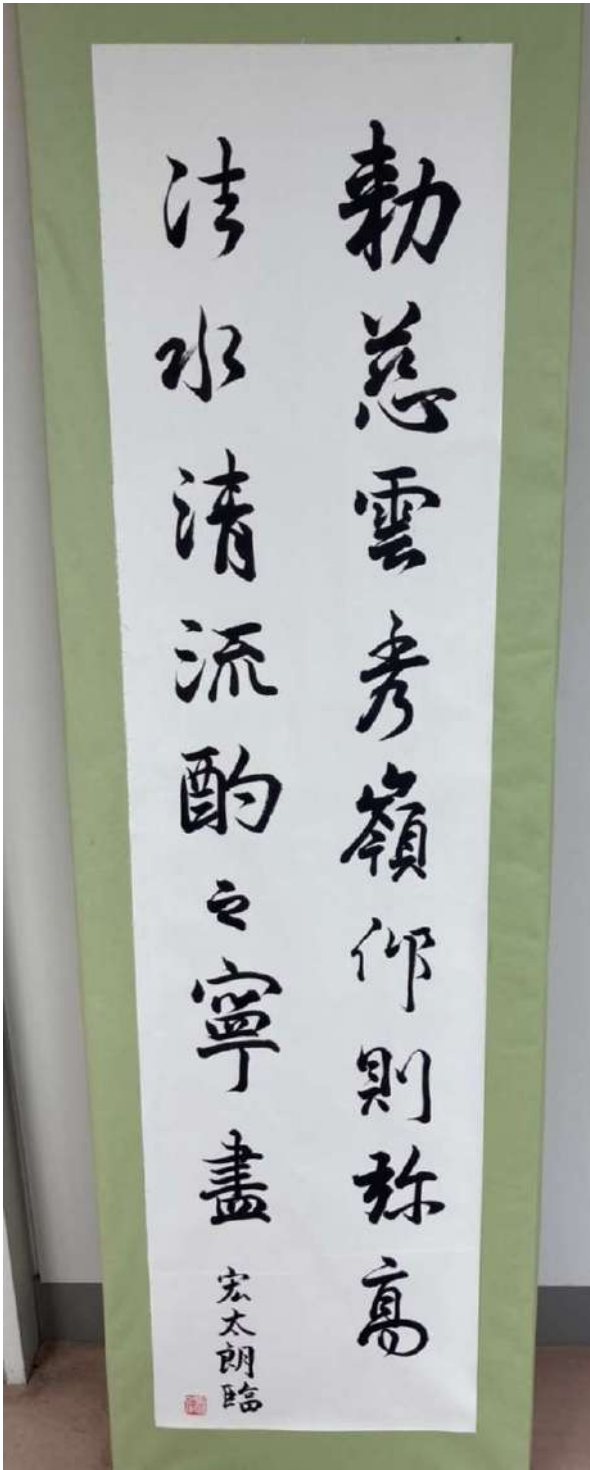 勅慈雲秀嶺仰則弥高
法水清流酌之寧盡
宏太朗臨